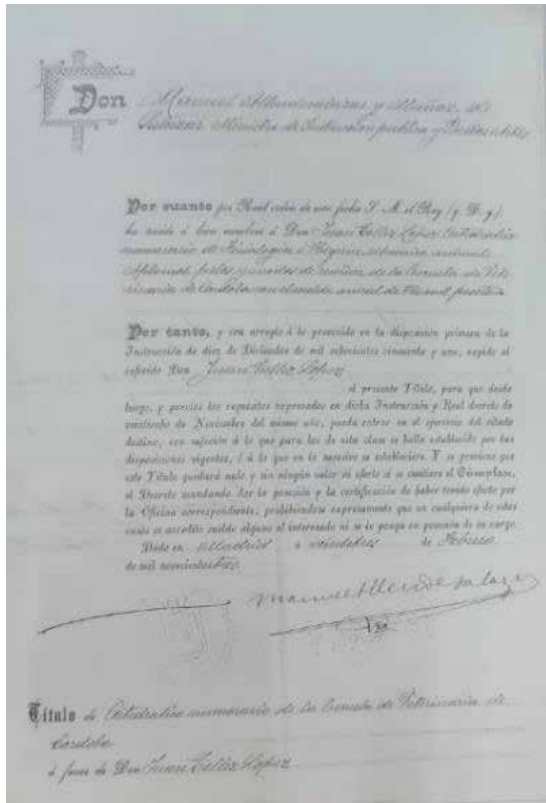 Don Manuel Allendesalazar y Muñoz de
Salazar Ministro de Instrucción pública y Bellas Artes
Por cuanto por Real orden de esta fecha S. M. el Rey (q. D. g.)
ha tenido á bien nombrar á Don Juan Tellez Lopez Catedrático
numerario de Fisiologia é Higiene, mecánica animal
Aplomos, pelos y modos de reseñar de la Escuela de Vete-
rinaria de Córdoba con el sueldo anual de mil pesetas
Por tanto, y con arreglo á lo prevenido en la disposición primera de la
Instrucción de diez de Diciembre de mil ochocientos cincuenta y uno, expido al
referido Don Juan Tellez López
el presente Título, para que desde
luego, y previos los requisitos expresados en dicha Instrucción y Real decreto de
veintiocho de Noviembre del mismo año, pueda entrar en el ejercicio del citado
destino, con sujeción á lo que para los de esta clase se halla establecido por las
disposiciones vigentes, ó á lo que en lo sucesivo se estableciere. Y se previene que
este Título quedará nulo y sin ningún valor ni efecto si se omitiere el Cúmplase,
el Decreto mandando dar la posesión y la certificación de haber tenido efecto por
la Oficina correspondiente, prohibiéndose expresamente que en cualquiera de estos
casos se acredite sueldo alguno al interesado ni se le ponga en posesión de su cargo.
Dado en Madrid á veintitres de Febrero
de mil novecientos tres
Manuel Allendesalazar
Título de Catedrático numerario de la Escuela de Veterinaria de
Cordoba
á favor de Don Juan Tellez Lopez